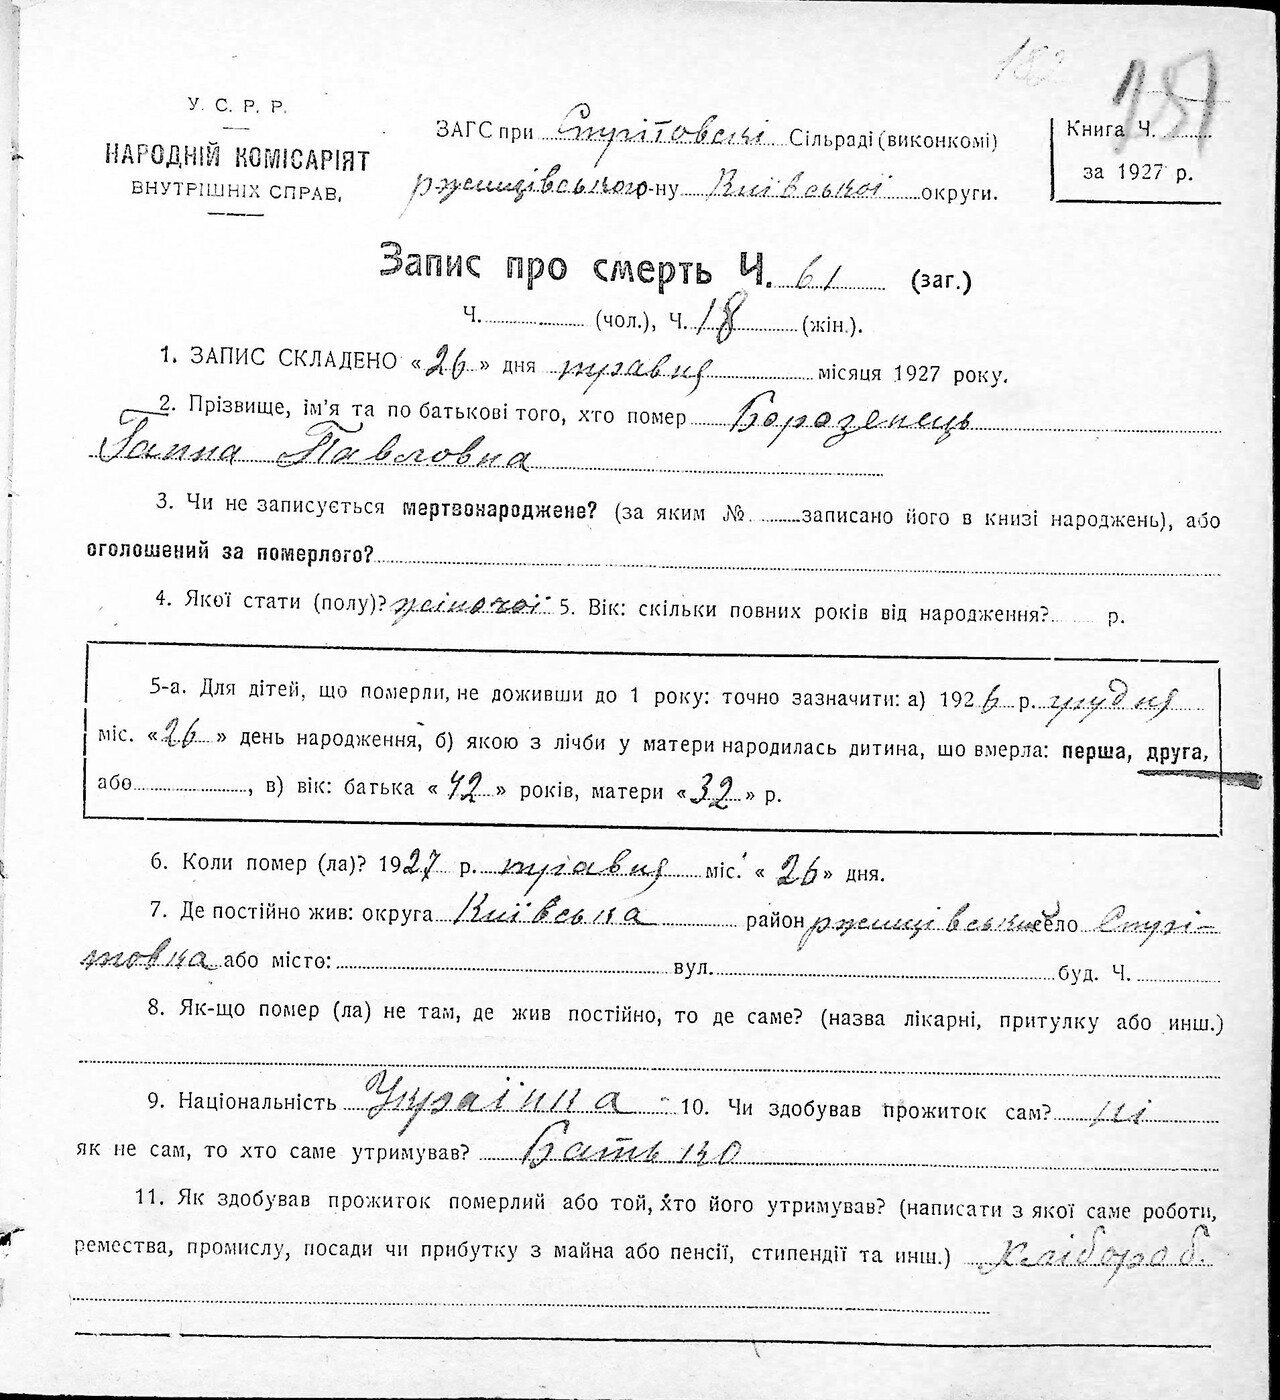 182
181
У. С. Р. Р.
НАРОДНІЙ КОМІСАРІЯТ
ВНУТРІШНІХ СПРАВ.
ЗАГС при Стрітовскі Сільраді (виконкомі)
ржищівського р-ну Київської округи.
Книга Ч.
за 1927 р.
Запис про смерть Ч. 61 (заг.)
Ч. (чол.), Ч. 18 (жін.).
1. ЗАПИС СКЛАДЕНО «26» дня травня місяця 1927 року.
2. Прізвище, ім'я та по батькові того, хто помер Борозенець
Ганна Павловна
3. Чи не записується мертвонароджене? (за яким № записано його в книзі народжень), або
оголошений за померлого?
4. Якої стати (полу)? жіночої 5. Вік: скільки повних років від народження? р.
5-а. Для дітей, що померли, не доживши до 1 року: точно зазначити: а) 1926 р. грудня
міс. «26» день народження, б) якою з лічби у матери народилась дитина, що вмерла: перша, друга,
або , в) вік: батька «42» років, матери «32» р.
6. Коли помер (ла)? 1927 р. травня міс. «26» дня.
7. Де постійно жив: округа Київська район ржищівський село Стрі-
товка або місто: вул. буд. Ч.
8. Як-що помер (ла) не там, де жив постійно, то де саме? (назва лікарні, притулку або инш.)
9. Національність Українка 10. Чи здобував прожиток сам? ні
як не сам, то хто саме утримував? Батько
11. Як здобував прожиток померлий або той, хто його утримував? (написати з якої саме роботи,
ремества, промислу, посади чи прибутку з майна або пенсії, стипендії та инш.) хлібороб.